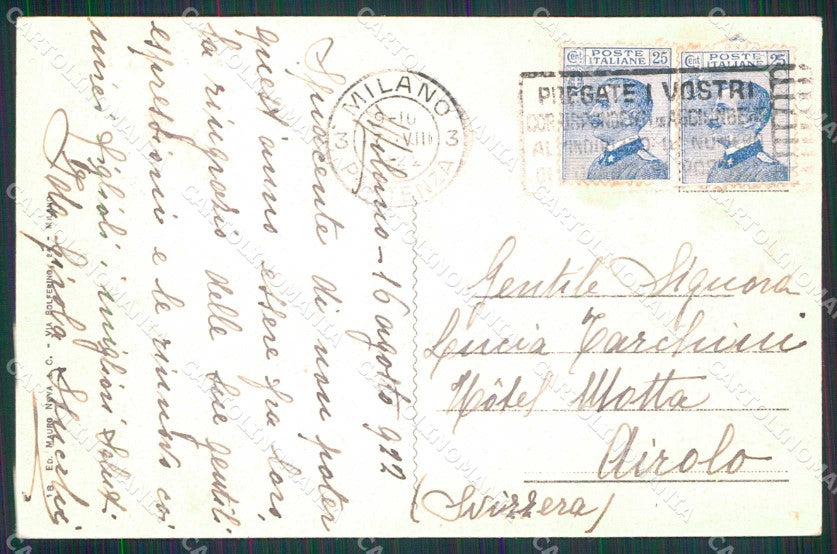 Milano - 16 agosto 922
Spiacente di non poter
quest'anno essere fra loro
La ringrazio delle sue gentili
espressioni e le riunisco coi
miei figlioli i migliori saluti
18. ED. MAURO NOVA & C. - VIA SOLFERINO, 22 - MILANO
MILANO
9-10
VIII
3 3
PARTENZA
POSTE ITALIANE
Cent 25
POSTE ITALIANE
Cent 25
PREGATE I VOSTRI
CORRISPONDENTI
Gentile Signora
Lucia Tarchini
Hôtel Motta
Airolo
(Svizzera)
CARTOLINOMANIA